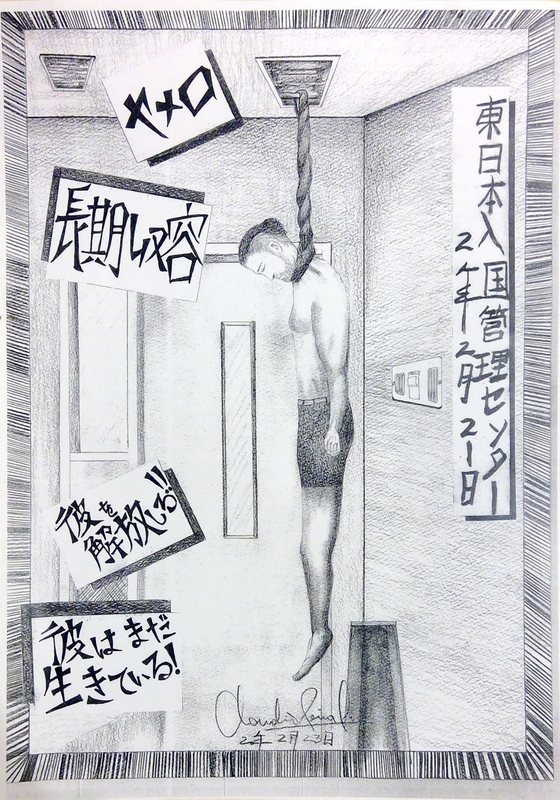 ヤメロ
長期収容
東日本入国管理センター
2年2月21日
彼を
解放しろ!!
彼はまだ
生きている!
Claudio
2年 2月